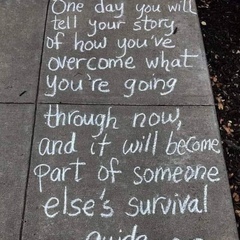 One day you will
tell your story
of how you've
overcome what
you're going
through now,
and it will become
part of someone
else's survival
guide